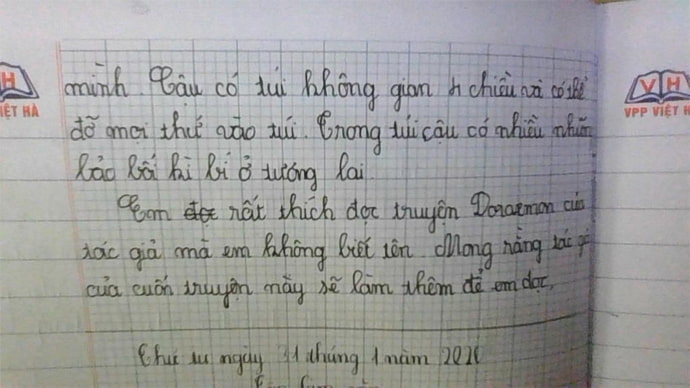 H
VIỆT HÀ
VH
VPP VIỆT H
mình. Cậu có túi không gian 4 chiều và có thể
đỡ mọi thứ vào túi. Trong túi cậu có nhiều nhữn
bảo bối kì bí ở tương lai
Em đọc rất thích đọc truyện Doraemon của
tác giả mà em không biết tên. Mong rằng tác gi
của cuốn truyện này sẽ làm thêm để em đọc.
Thứ tư ngày 31 tháng 1 năm 2020